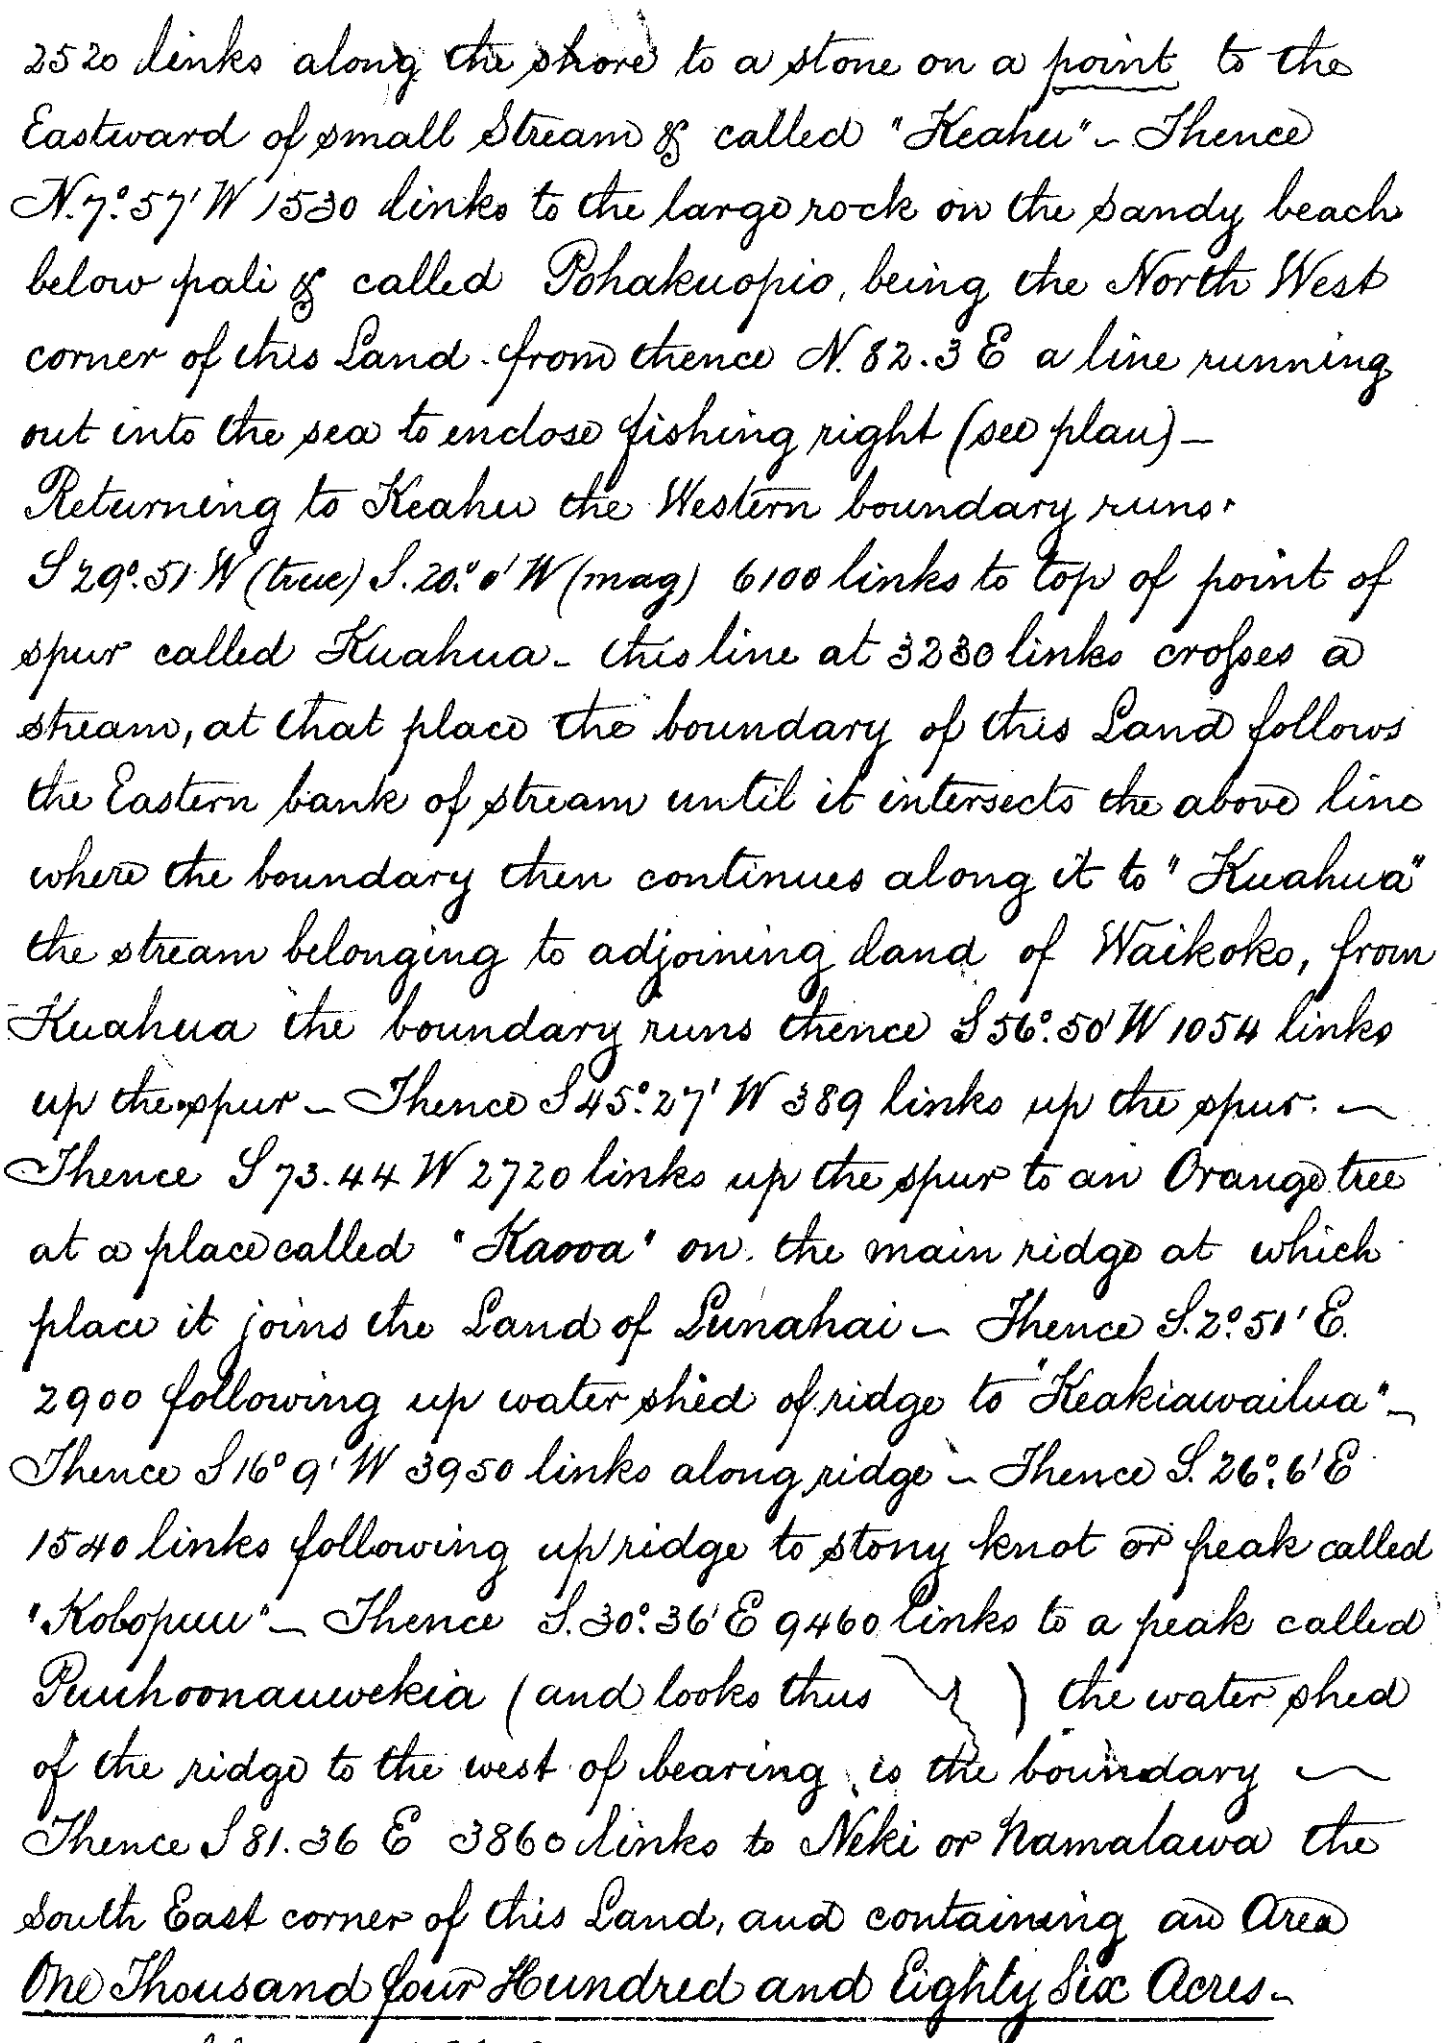 2520 links along the shore to a stone on a point to the
Eastward of small Stream & called "Keahu" - Thence
N. 7°. 57' W 1530 links to the large rock on the sandy beach
below pali & called Pohakuopio, being the North West
corner of this Land. from thence N. 82. 3 E a line running
out into the sea to enclose fishing right (see plan) -
Returning to Keahu the Western boundary runs.
S 29°. 51' W (true) S. 20°. 0' W (mag) 6100 links to top of point of
spur called Kuahua - this line at 3230 links crosses a
stream, at that place the boundary of this Land follows
the Eastern bank of stream until it intersects the above line
where the boundary then continues along it to "Kuahua"
the stream belonging to adjoining land of Waikoko, from
Kuahua the boundary runs thence S 56°. 50' W 1054 links
up the spur - Thence S 45°. 27' W 389 links up the spur. -
Thence S 73. 44 W 2720 links up the spur to an Orange tree
at a place called "Kaooa" on the main ridge at which
place it joins the Land of Lunahai - Thence S. 2°. 51' E.
2900 following up water shed of ridge to "Keakiawailua" -
Thence S 16° 9' W 3950 links along ridge - Thence S. 26°. 6' E
1540 links following up ridge to stony knot or peak called
"Kobopuu" - Thence S. 30°. 36' E 9460 links to a peak called
Puuhoonauwekia (and looks thus ) the water shed
of the ridge to the west of bearing is the boundary -
Thence S 81. 36 E 3860 links to Neki or Namalawa the
South East corner of this Land, and containing an Area
One Thousand four Hundred and Eighty Six Acres -